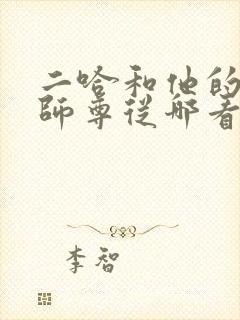 二哈和他的
師尊從那看
李智